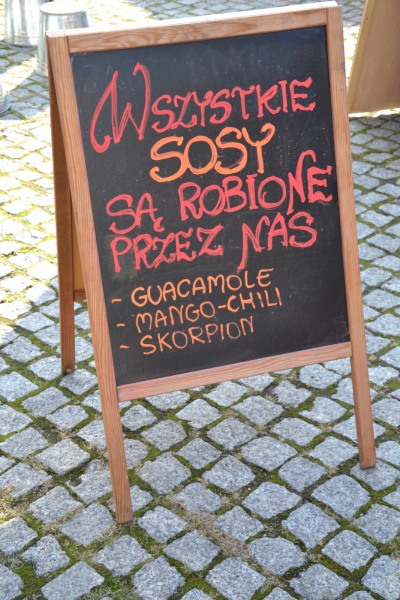 WSZYSTKIE
SOSY
SĄ ROBIONE
PRZEZ NAS
- GUACAMOLE
- MANGO-CHILI
- SKORPION